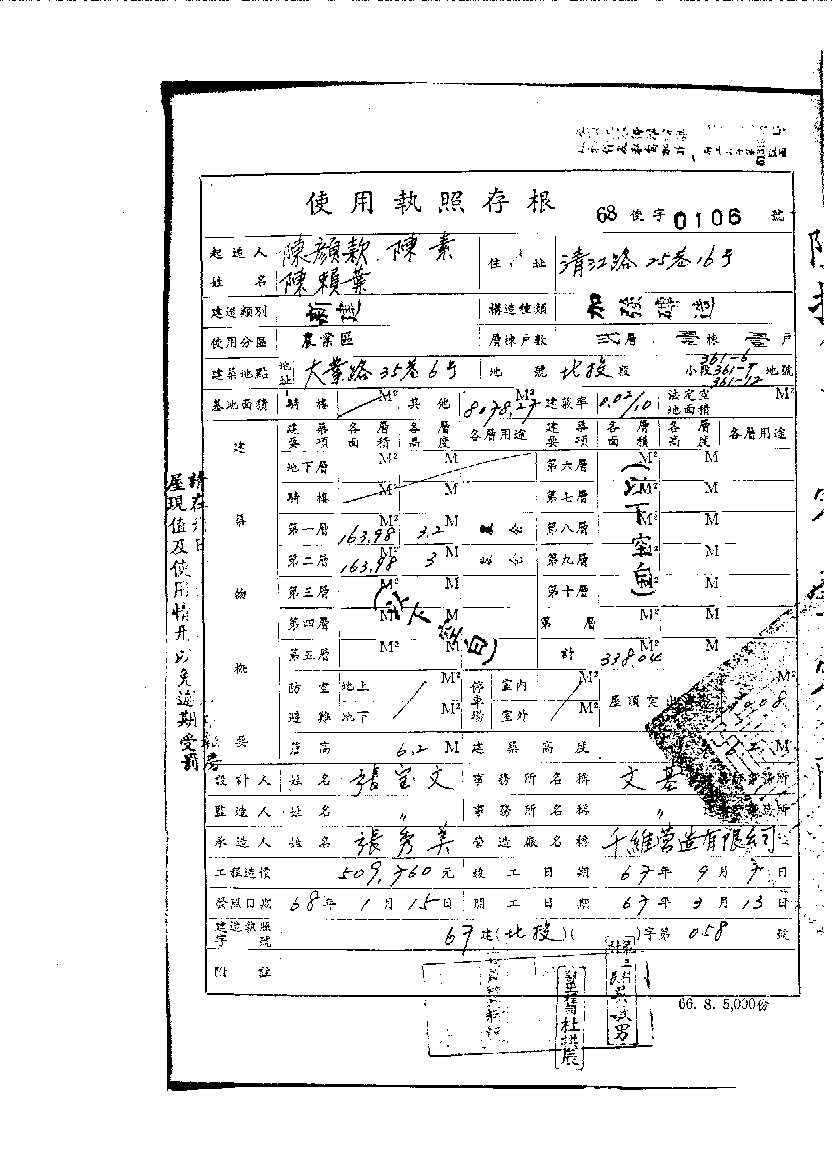 使用執照存根 68 使字 0106 號
起造人姓名 陳顏款 陳素 陳賴葉 住址 清江路25巷16号
建造類別 構造種類 加強磚造
使用分區 農業區 層棟戶數 弍層 壹棟 壹戶
建築地點 地址 大業路35巷6号 地號 北投段 小段 361-6 361-12 地號
基地面積 騎樓 M² 其他 8078.27 M² 建蔽率 0.02/10 法定空地面積 M²
建築物概要 建築要項 各層面積 各層高度 各層用途 建築要項 各層面積 各層高度 各層用途
地下層 M² M 第六層 M² M
騎樓 M² M 第七層 M² M
第一層 163.98 M² 3.2 M 第八層 M² M
第二層 163.98 M² 3 M 第九層 M² M
第三層 M² M 第十層 M² M
第四層 M² M 第 層 M² M
第五層 M² M 計 338.04 M² M
(以下空白)
(以下空白)
防空避難 地上 M² 停車場 室內 M² 屋頂突出 M²
地下 M² 室外 M²
簷高 6.2 M 建築高度 M
設計人 姓名 張宝文 事務所名稱 文基
監造人 姓名 〃 事務所名稱 〃
承造人 姓名 張秀美 營造廠名稱 千維營造有限公司
工程造價 509,760元 竣工日期 67年9月7日
發照日期 68年1月15日 開工日期 67年3月13日
建造執照字號 67建(北投)( )字第058號
附註
66. 8. 5,000份
杜拱辰